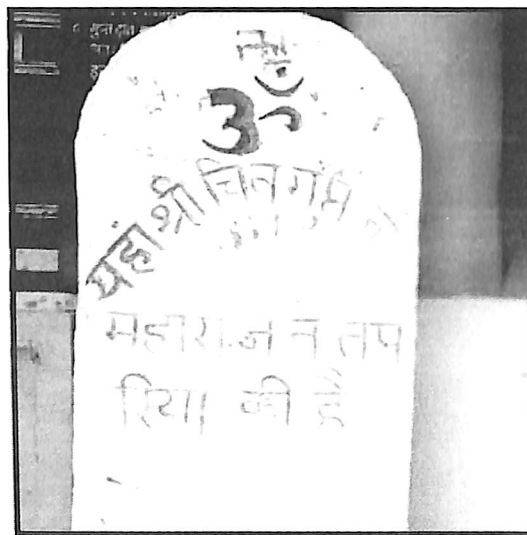 ॐ
यहां श्री चित्रगुप्त
महाराज ने तप
रिया की है